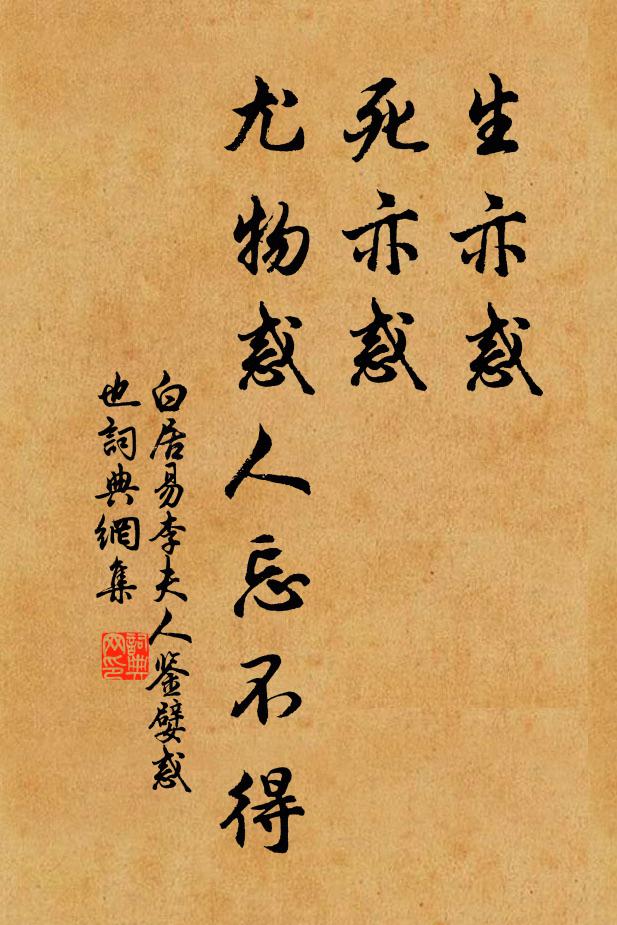 生亦惑
死亦惑
尤物惑人忘不得
白居易李夫人鉴嬖惑
也詞典網集
詞典网印